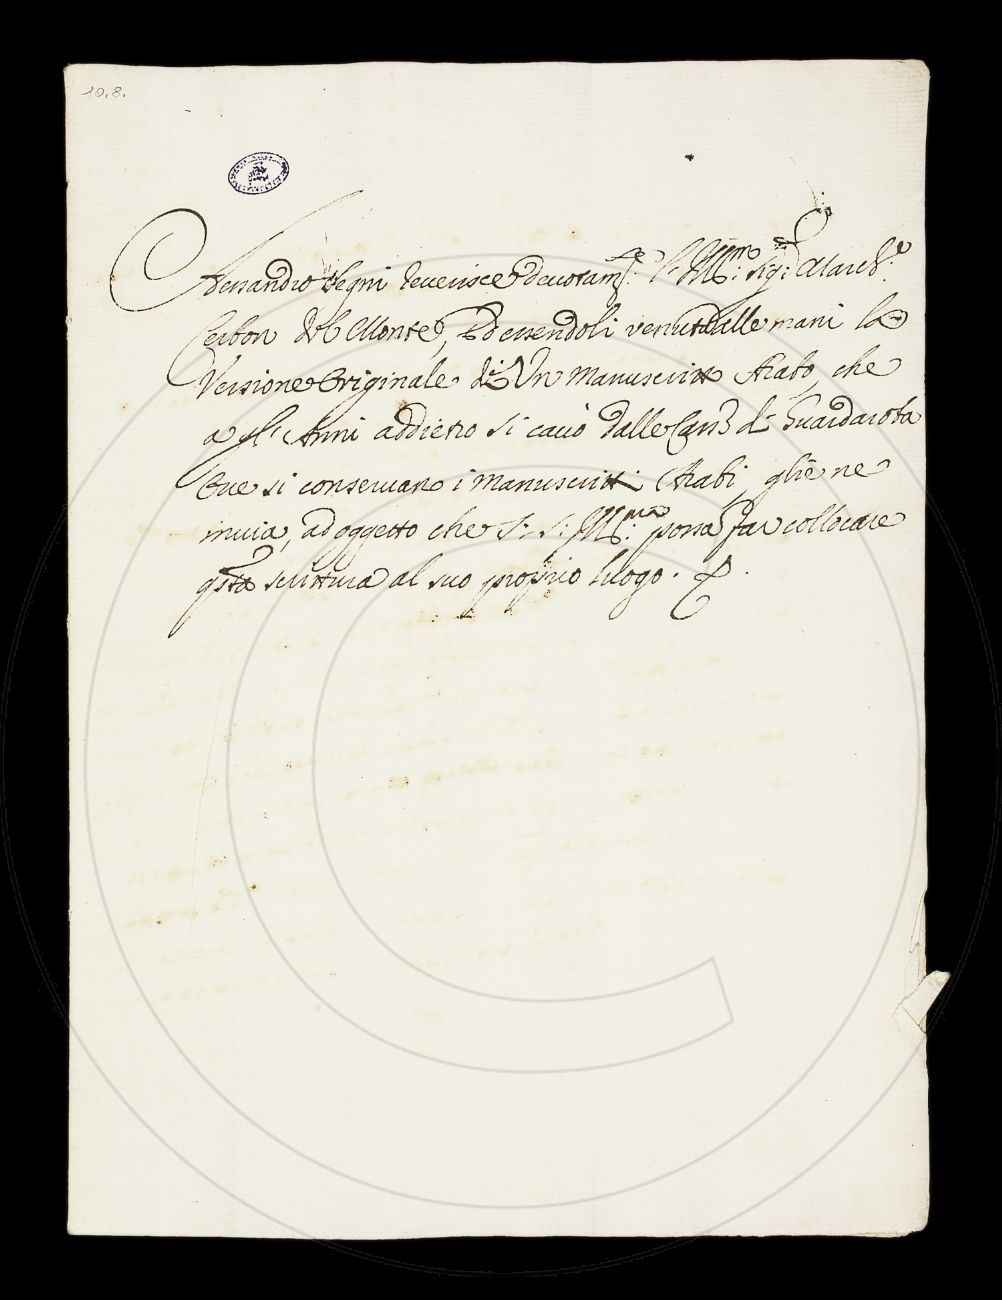 10.8.
Alessandro Segni reverisce devotam.te l'Ill.mo Sig.r March.e
Cerbon del Monte, Ed essendoli venuta alle mani la
Versione Originale di Un Manuscritto Arabo, che
a gl'Anni addietro si cavò dalle Canz di Guardaroba
Ove si conservano i Manuscritti Arabi, gliene
invia, ad oggetto che S: S: Ill.ma possa far collocare
q.sta scrittura al suo proprio luogo.